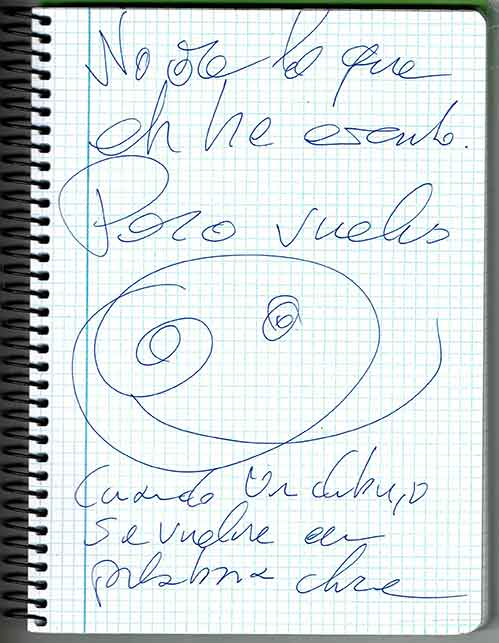 No sé lo que
eh he escrito.
Pero vuelvo
Cuando un dibujo
se vuelve en
palabra